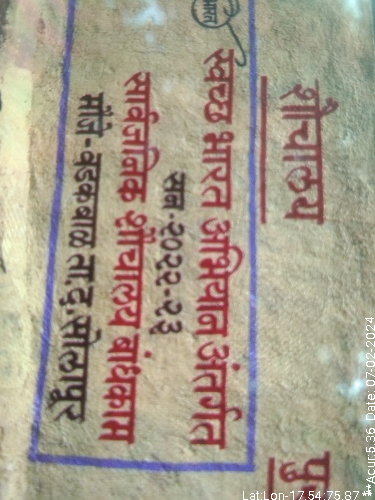 भारत
शौचालय
स्वच्छ भारत अभियान अंतर्गत
सन-२०२२-२३
सार्वजनिक शौचालय बांधकाम
मौजे-वडकबाळ ता.द.सोलापूर
पु
Lat:Lon-17.54:75.87
***Acur:5.36 Date: 07-02-2024